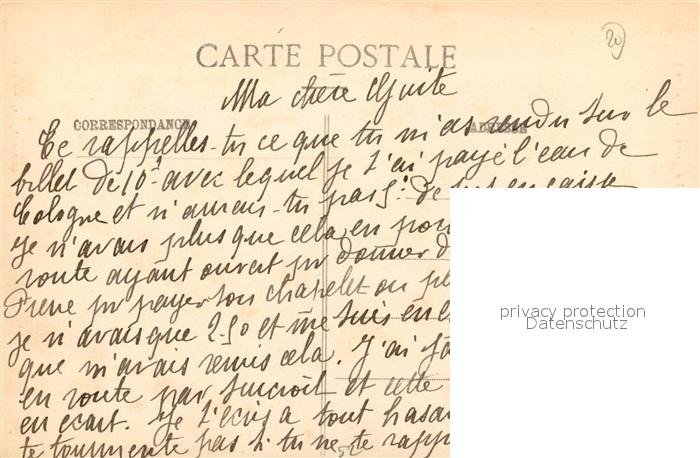 20
CARTE POSTALE
Ma chère Guite
CORRESPONDANCE
ADRESSE
Te rappelles-tu ce que tu m'as rendu sur le
billet de 10f avec lequel je t'ai payé l'eau de
Cologne et n'aurais-tu pas de en caisse
Je n'avais plus que cela en
route ayant ouvert pr donner
pr payer son chapelet ou
je n'avais que 2.50 et me suis
que m'avais remis cela. J'ai
en route par surcroît et cette
en écart. Je t'écris à tout
te tourmente pas si tu ne te
privacy protection
Datenschutz